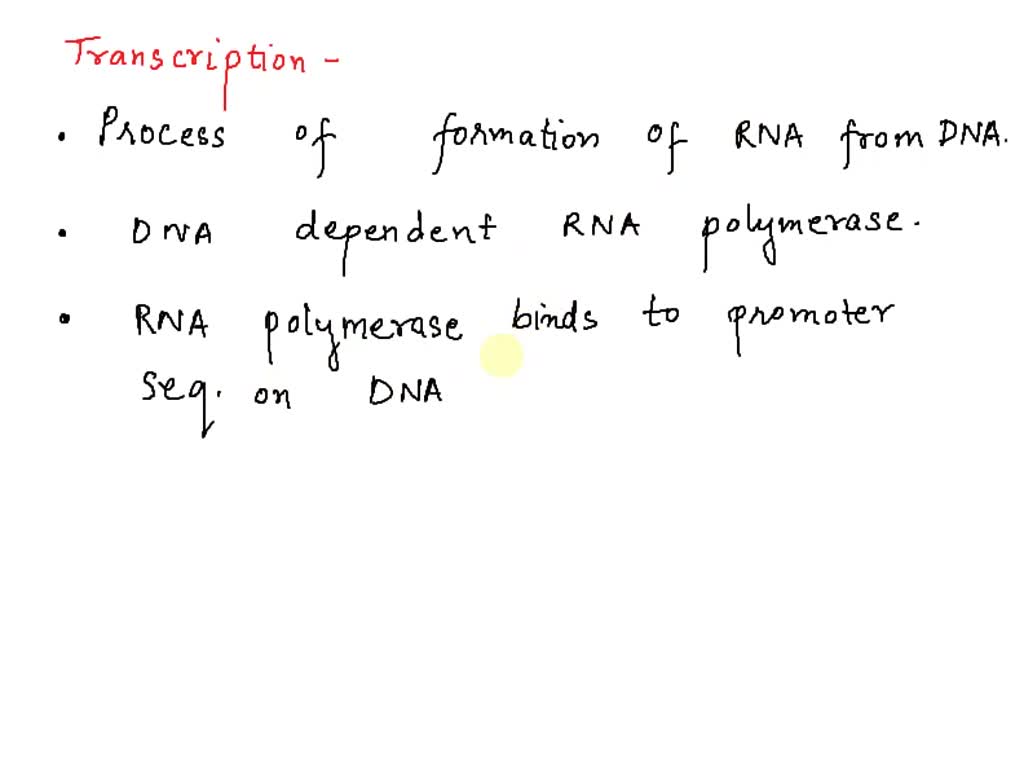 Transcription -
• Process of formation of RNA from DNA.
• DNA dependent RNA polymerase.
• RNA polymerase binds to promoter
seq. on DNA